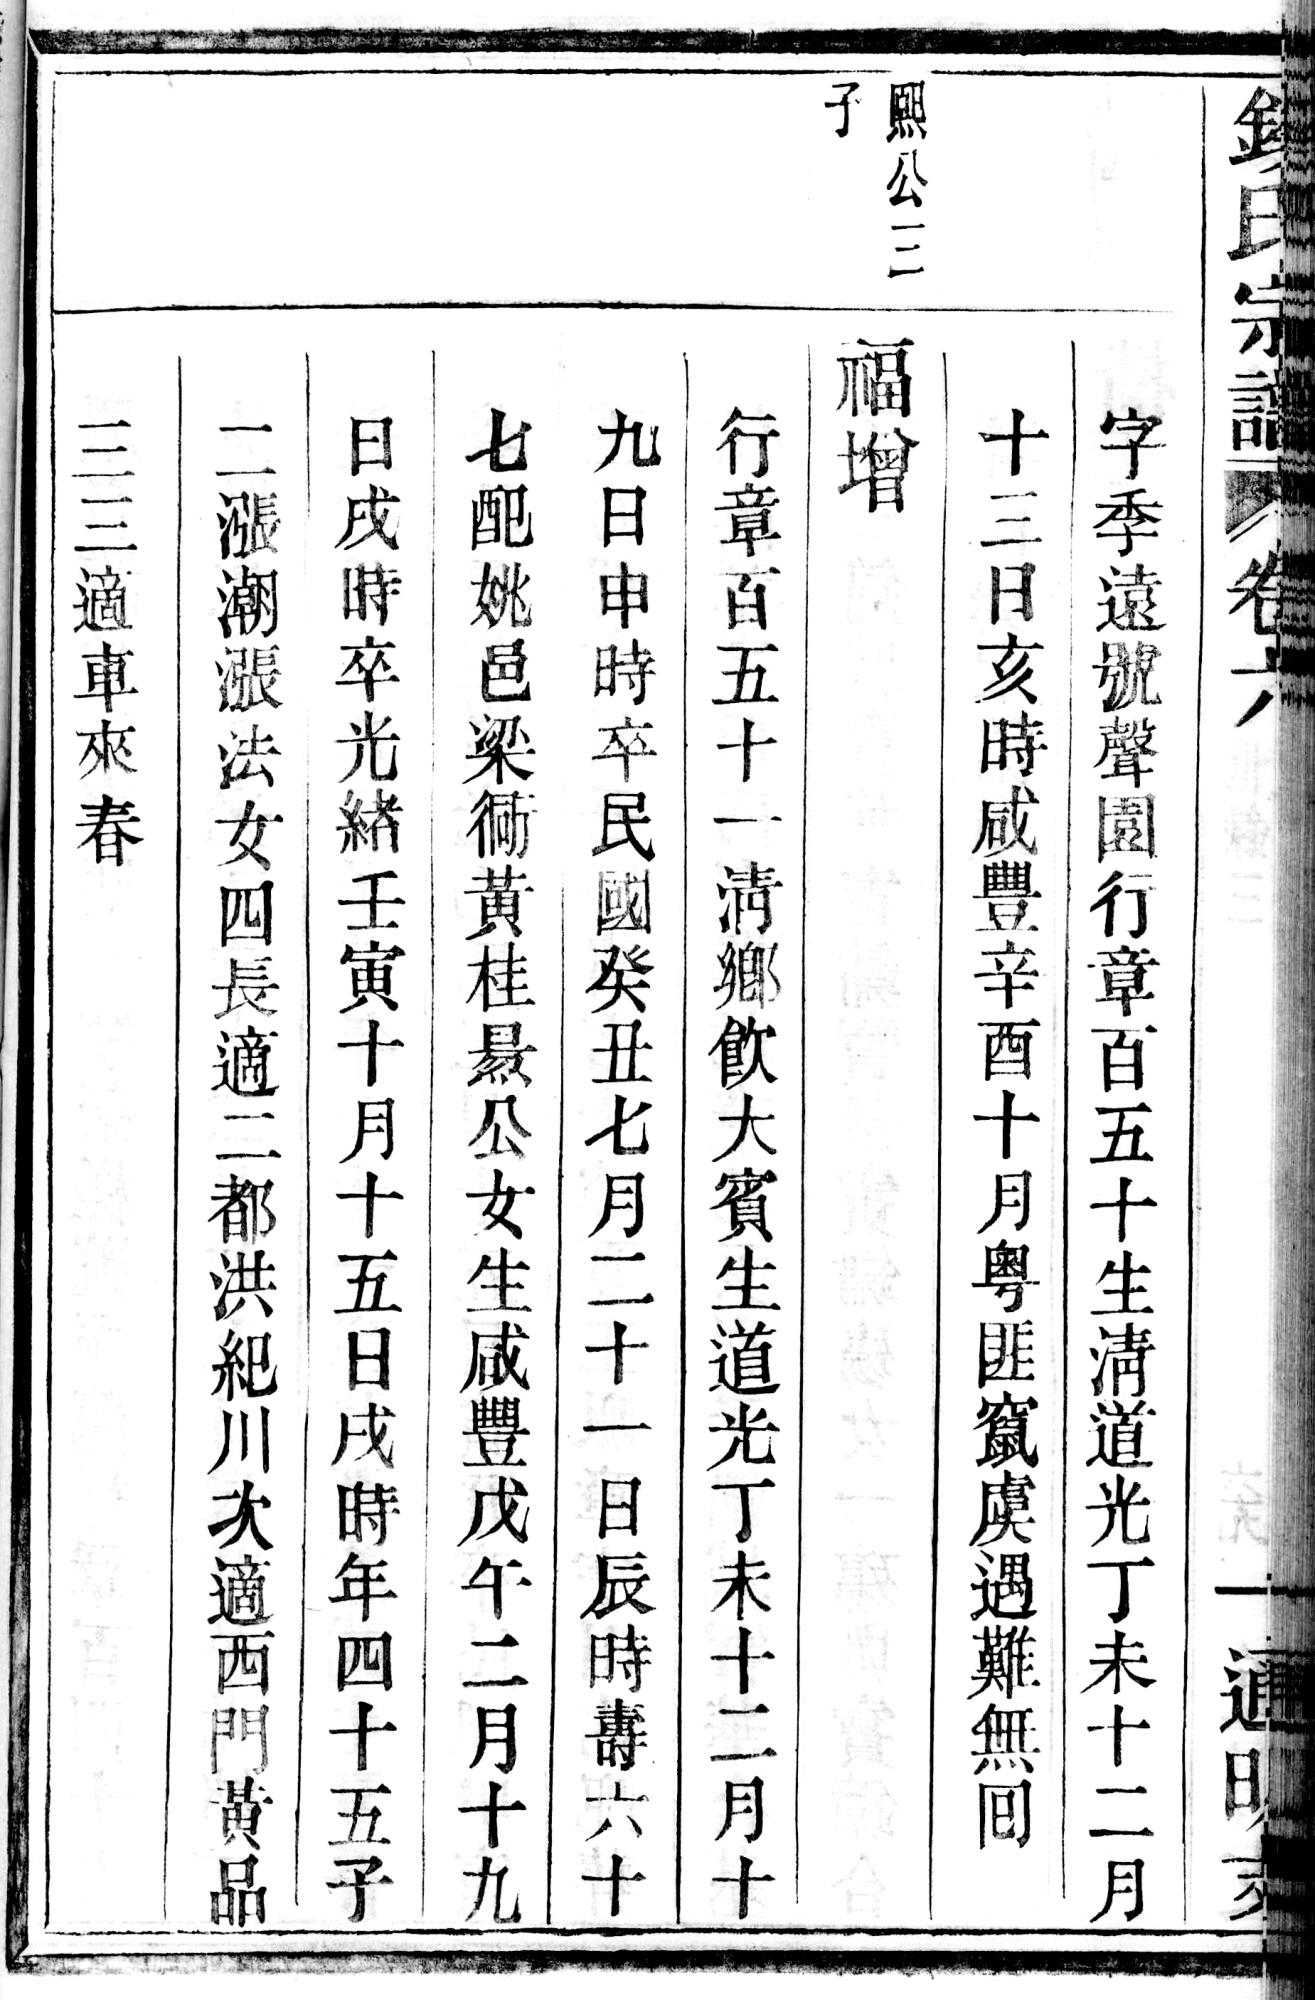 氏宗譜 卷六 一 通明支
字季遠號聲園行章百五十生淸道光丁未十二月
十三日亥時咸豐辛酉十月粵匪竄虞遇難無回
熙公三
子
福增
行章百五十一淸鄕飮大賓生道光丁未十二月十
九日申時卒民國癸丑七月二十一日辰時壽六十
七配姚邑梁衕黃桂公女生咸豐戊午二月十九
日戌時卒光緒壬寅十月十五日戌時年四十五子
二漲潮漲法女四長適二都洪紀川次適西門黃品
三三適車來春